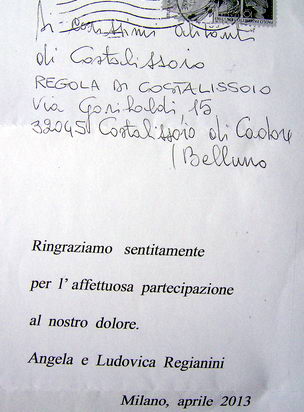 Ai carissimi abitanti
di Costalissoio
REGOLA DI COSTALISSOIO
Via Garibaldi, 15
32045 Costalissoio di Cadore
(Belluno
Ringraziamo sentitamente
per l'affettuosa partecipazione
al nostro dolore.
Angela e Ludovica Regianini
Milano, aprile 2013